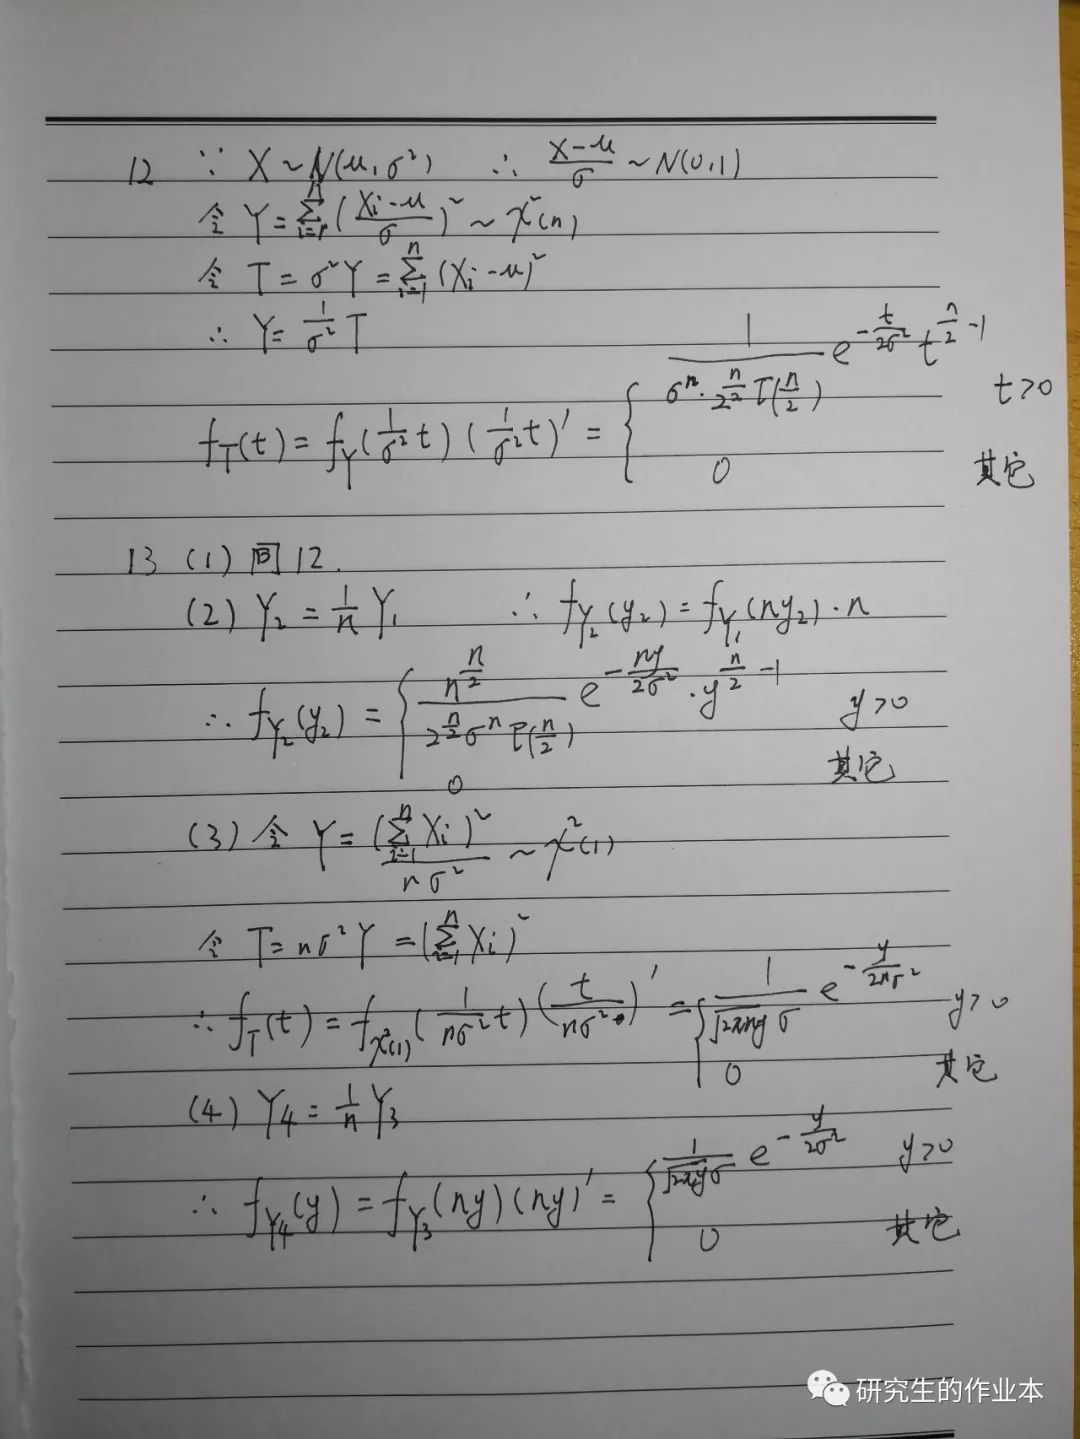 12 ∵ X ~ N(μ, σ²) ∴ (X-μ)/σ ~ N(0,1)
令 Y = Σ_{i=1}^{n} ((Xi-μ)/σ)² ~ χ²(n)
令 T = σ²Y = Σ_{i=1}^{n} (Xi-μ)²
∴ Y = 1/σ² T
f_T(t) = f_Y(1/σ² t) (1/σ² t)′ = { 1/(σ^n · 2^{n/2} Γ(n/2)) e^{-t/2σ²} t^{n/2 -1} t>0
0 其它
13 (1) 同12.
(2) Y₂ = 1/n Y₁ ∴ f_{Y₂}(y₂) = f_{Y₁}(ny₂)·n
∴ f_{Y₂}(y₂) = { n^{n/2}/(2^{n/2} σ^n Γ(n/2)) e^{-ny/2σ²} · y^{n/2 -1} y>0
0 其它
(3) 令 Y = (Σ_{i=1}^{n} Xi)²/(nσ²) ~ χ²(1)
令 T = nσ²Y = (Σ_{i=1}^{n} Xi)²
∴ f_T(t) = f_{χ²(1)}(1/(nσ²) t) (t/(nσ²))′ = { 1/(√(2πny) σ) e^{-y/2nσ²} y>0
0 其它
(4) Y₄ = 1/n Y₃
∴ f_{Y₄}(y) = f_{Y₃}(ny)(ny)′ = { 1/(√(2πy) σ) e^{-y/2σ²} y>0
0 其它
研究生的作业本